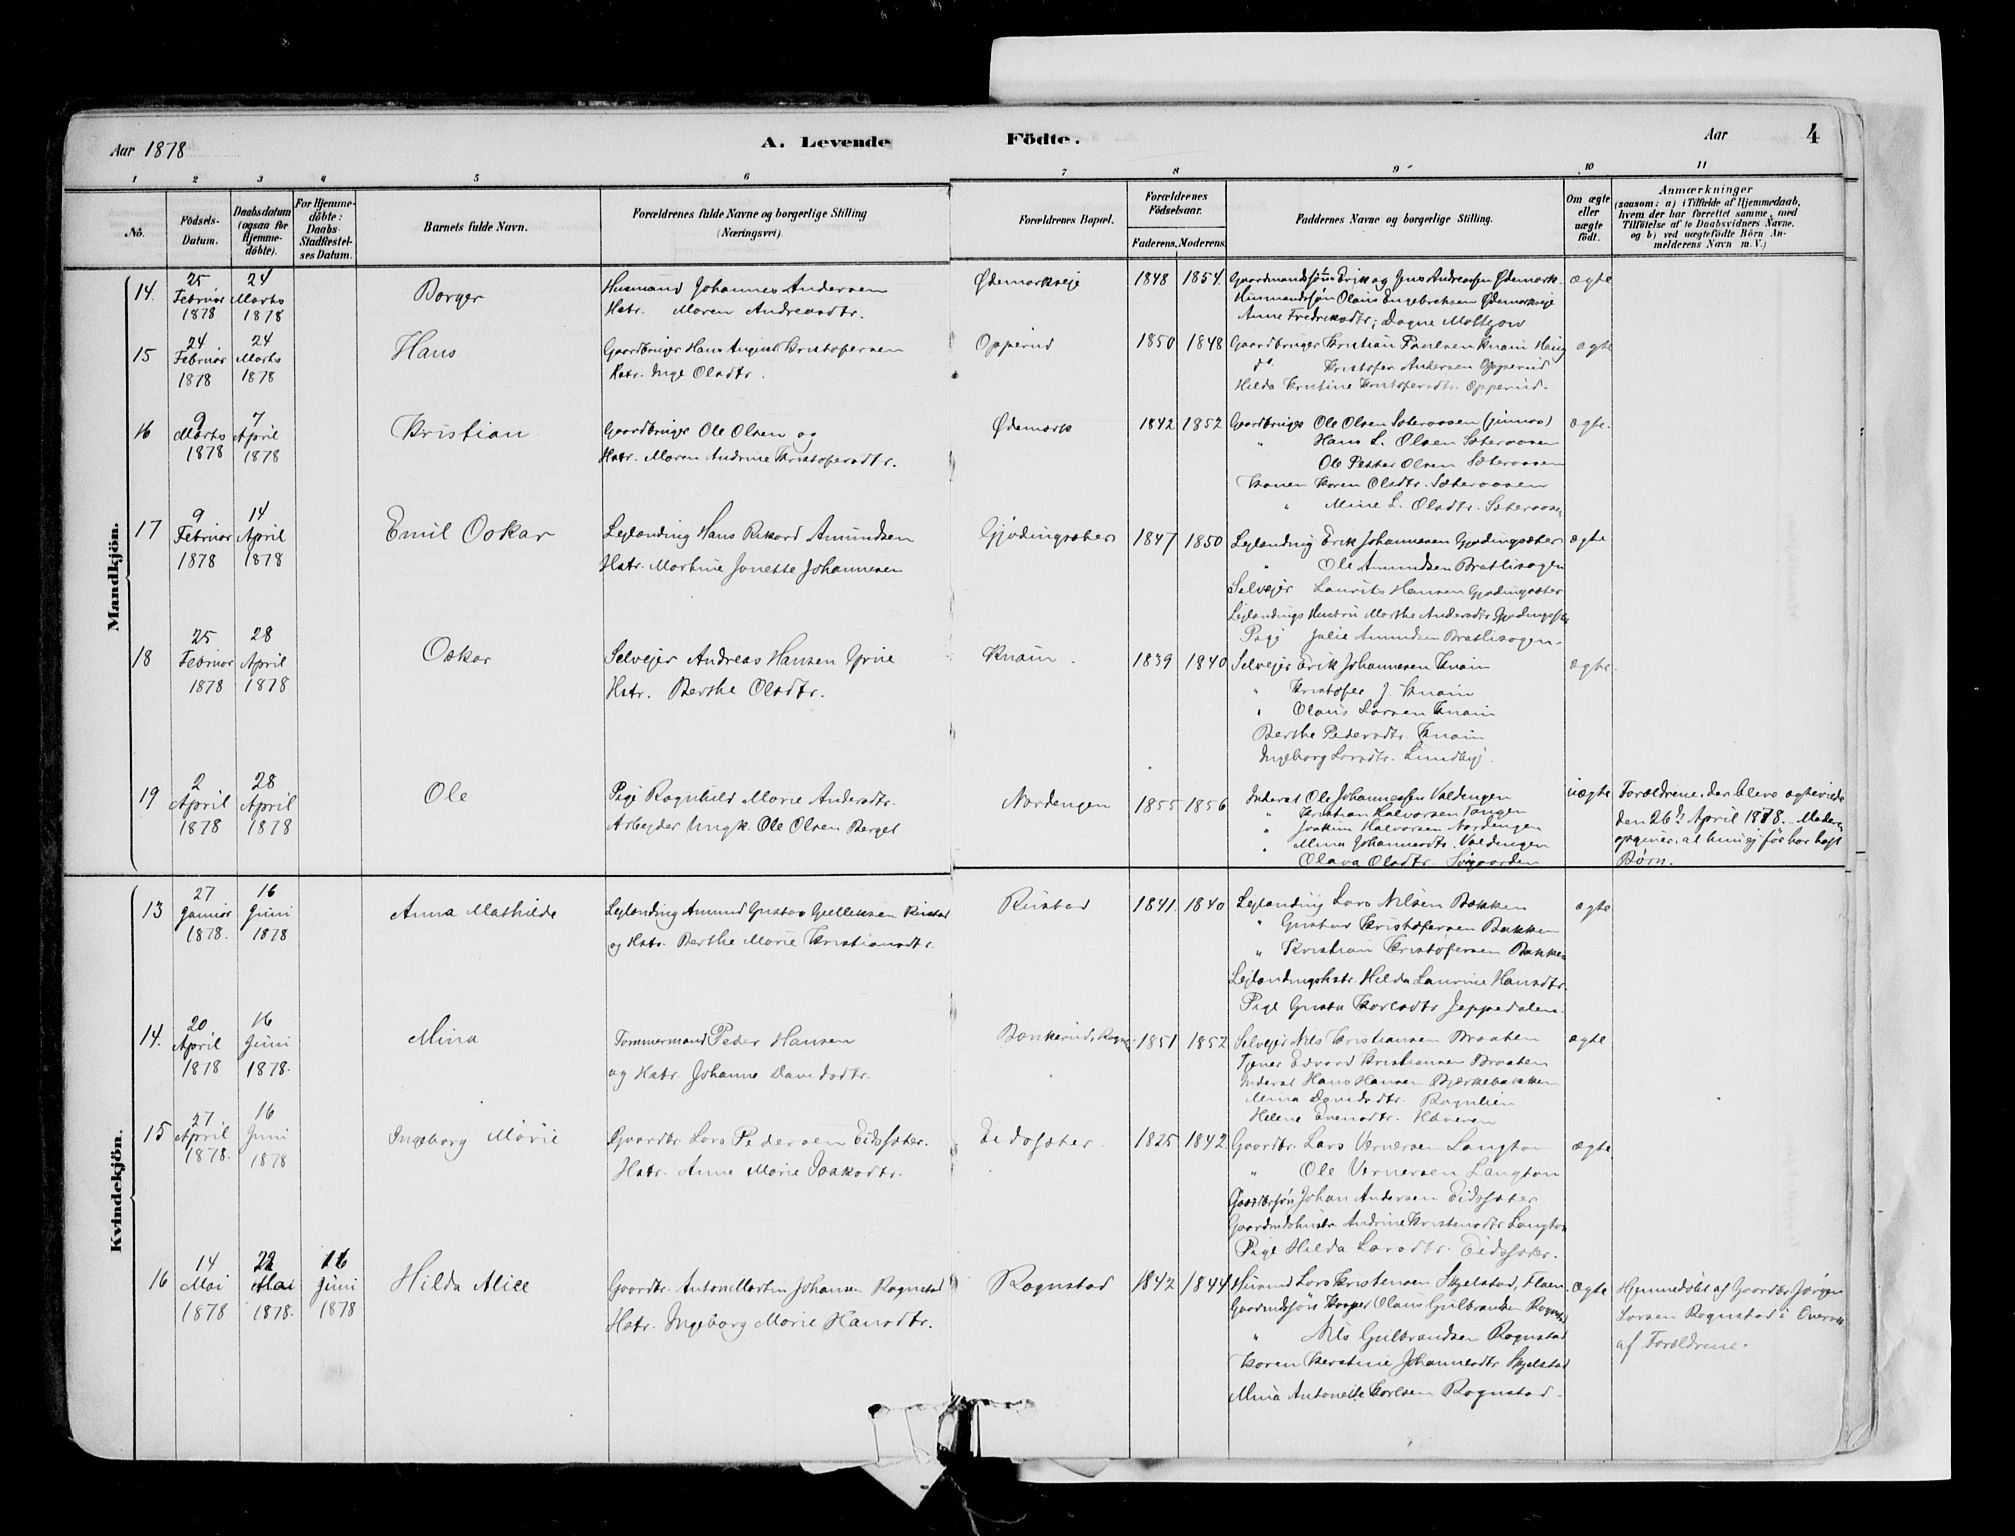 Aar 1878
A. Levende Födte.
Aar
4
1 2 3 4 5 6 7 8 9 10 11
No.
Födsels-Datum.
Daabsdatum (ogsaa for Hjemme-döbte).
For Hjemme-döbte: Daabs-Stadfæstel-ses Datum.
Barnets fulde Navn.
Forældrenes fulde Navne og borgerlige Stilling (Næringsvei).
Forældrenes Bopæl.
Forældrenes Födselsaar.
Faderens. Moderens.
Faddernes Navne og borgerlige Stilling.
Om ægte eller uægte födt.
Anmærkninger
(saasom: a) i Tilfælde af Hjemmedaab, hvem der har forrettet samme, med Tilföielse af to Daabsvidners Navne, og b) ved uægtefödte Börn An-melderens Navn m. V.)
Mandkjön.
14. 25 Februar 1878 24 Marts 1878 Borger
Husmand Johannes Andersen
Hstr. Maren Andreasdtr.
Ødemarkeje 1848 1854
Gaardmandssønn Erik og Jens Andreassen Ødemark
Husmandssøn Olaus Engebretsen Ødemarkeje
Anne Fredriksdtr; Dagne
ægte
15 24 Februar 1878 24 Marts 1878 Hans
Gaardbruger Hans August Kristofersen
Hstr. Inge Olsdtr.
Opperud 1850 1848
Gaardbruger Kristian Paulsen Knain
do Kristofer Andersen Opperud
Hilda Kristine Kristofersdtr. Opperud.
ægte
16 9 Marts 1878 7 April 1878 Kristian
Gaardbruger Ole Olsen og
Hstr. Maren Andrine Kristofersdtr.
Ødemark 1842 1852
Gaardbruger Ole Olsen Sæteraasen (junior)
" Hans L. Olsen Sæteraasen
Ole Petter Olsen Sæteraasen
Konen Karen Olsdtr. Sæteraasen
" Mine L. Olsdtr. Sæteraasen
ægte.
17 9 Februar 1878 14 April 1878 Emil Oskar
Leilænding Hans Rikard Amundsen
Hstr. Martine Jonette Johannesen
Gjødingsæter 1847 1850
Leilænding Erik Johannesen Gjødingsæter
" Ole Amundsen Bratlisagen
Selvejer Laurits Hansen Gjødingsæter
Leilændings Hustru Marthe Andersdtr Gjødingsæt
Pige Julie Amundsen Bratlisagen.
ægte
18 25 Februar 1878 28 April 1878 Oskar
Selvejer Andreas Hansen
Hstr. Berthe Olsdtr.
Knain. 1839 1840
Selvejer Erik Johannesen Knain
" Kristofer J. Knain
" Olaus Larsen Knain
Berthe Pedersdtr. Knain
Ingeborg Larsdtr. Lundbyj.
ægte.
19 2 April 1878 28 April 1878 Ole
Pige Ragnhild Marie Andersdtr.
Arbejder Ungk. Ole Olsen Berget
Nordengen 1855 1856
Inderst Ole Johannessen Valdengen
" Kristian Halvorsen Tangen
" Joakim Halvorsen Nordengen
" Mina Johannesdtr. Valdengen
Olava Olsdtr.
uægte
Forældrene, der bleve ægteviede
den 26de April 1878. Moderen
opgiver, at hun ej før har haft
Børn.
Kvindekjön.
13 27 Januar 1878. 16 Juni 1878 Anna Mathilde
Leilænding Amund Gustav Gulliksen Rustad
og Hstr. Berthe Marie Kristiansdtr.
Rustad 1841. 1840
Leilænding Lars Nilsen Bakken
" Gustav Kristofersen Bakken
" Kristian Kristofersen Bakken
Leilændingshstr. Hilda Laurine Hansdtr.
Pige Gusta Karlsdtr Jeppedalen.
ægte
14. 20 April 1878 16 Juni 1878. Mina
Tømmermand Peder Hansen
og Hstr. Johanne Davidsdtr.
1851 1852
Selvejer Nils Kristiansen Braaten
Tjener Edvard Kristiansen Braaten
Inderst Hans Hansen Bjerkebakken
Mina Davidsdtr. Rognlien
Helene Evensdtr.
ægte
15 27 April 1878. 16 Juni 1878 Ingeborg Marie
Gaardbr. Lars Pedersen Eidssæter.
Hstr. Anne Marie Isaksdtr.
Eidssæter. 1825 1842
Gaardbr. Lars Vernersen Langton
" Ole Vernersen Langton
Gaardbrsøn Johan Andersen Eidssæter
Andrine Kristensdtr Langton
Pige Hilda Larsdtr. Eidssæter.
ægte
16 14 Mai 1878 22 Mai 1878. 16 Juni 1878 Hilda Alice
Gaardbr. Anton Martin Johansen Rognstad
Hstr. Ingeborg Marie Hansdtr.
Rognstad 1842 1844
Husmd Lars Kristensen Skjelstad,
Gaardmdssøn Kasper Olaus Gulbrandsen Rognstad
" Nils Gulbrandsen Rognstad
Karen Kerstine Johannesdtr Skjelstad
Mina Antonette Karlsen Rognstad.
Ægte
Hjemmedøbt af Gaardbr. Jørgen
Larsen Rognstad i Overvær
af Forældrene.